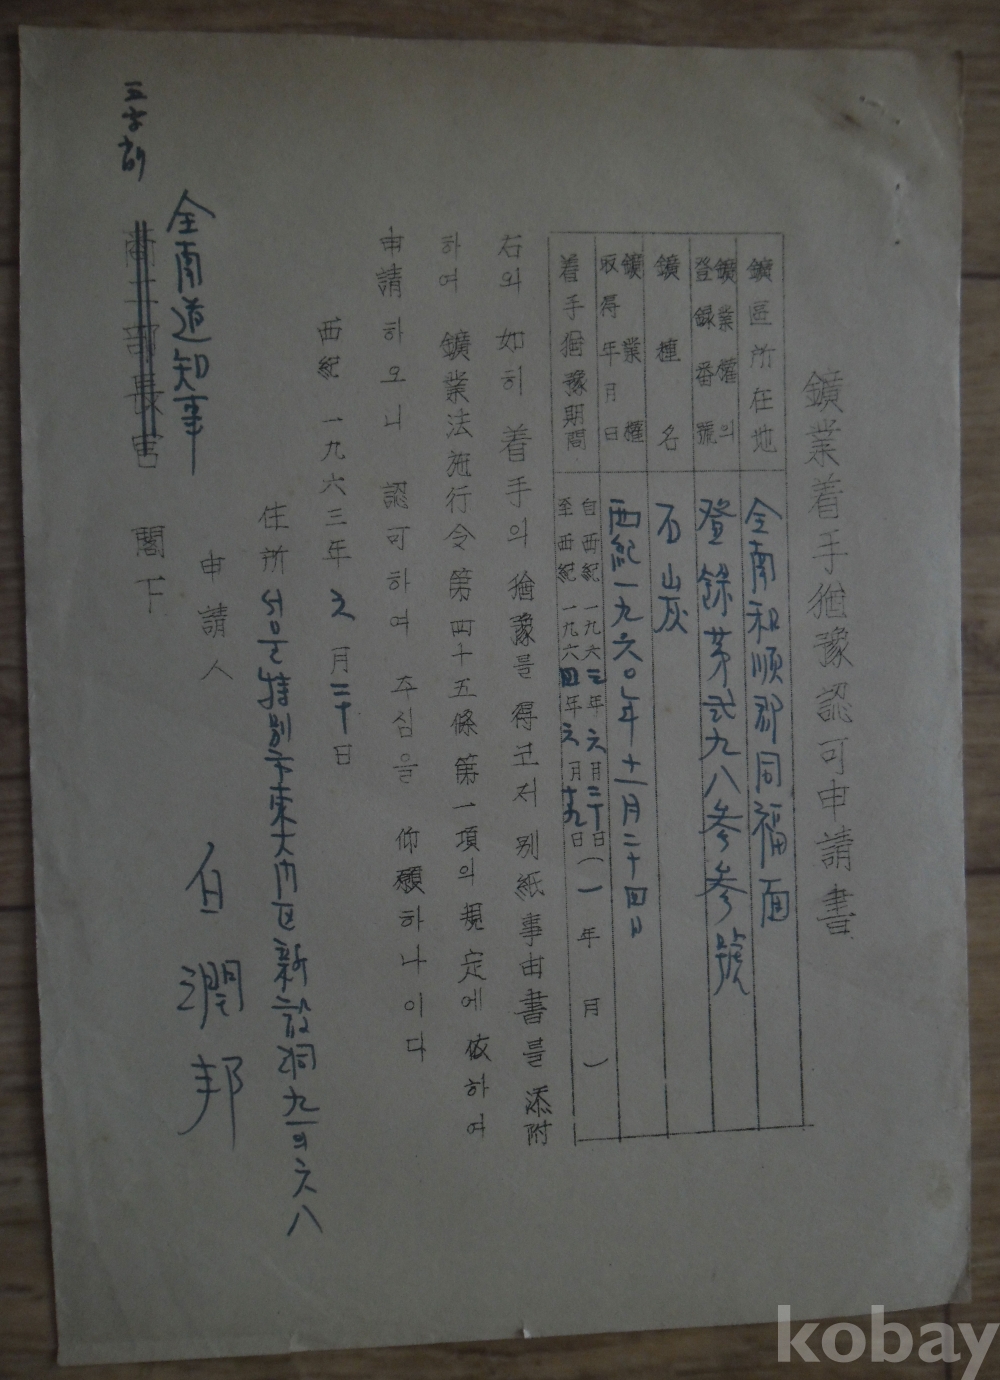 鑛業着手猶豫認可申請書
鑛區所在地 全南和順郡同福面
鑛業權의登錄番號 登錄第弍九八参参號
鑛種名 石灰
鑛業權取得年月日 西紀一九六〇年十一月二十四日
着手猶豫期間 自西紀一九六三年六月二十日
至西紀一九六四年六月十九日 (一年 月)
右와 如히 着手의 猶豫를 得코저 別紙事由書를 添附
하여 鑛業法施行令第四十五條第一項의 規定에 依하여
申請하오니 認可하여 주심을 仰願하나이다
西紀 一九六三年 六月二十日
住所 서울特別市東大門区新設洞九一의六八
申請人 白潤邦
全南道知事
商工部長官 閣下